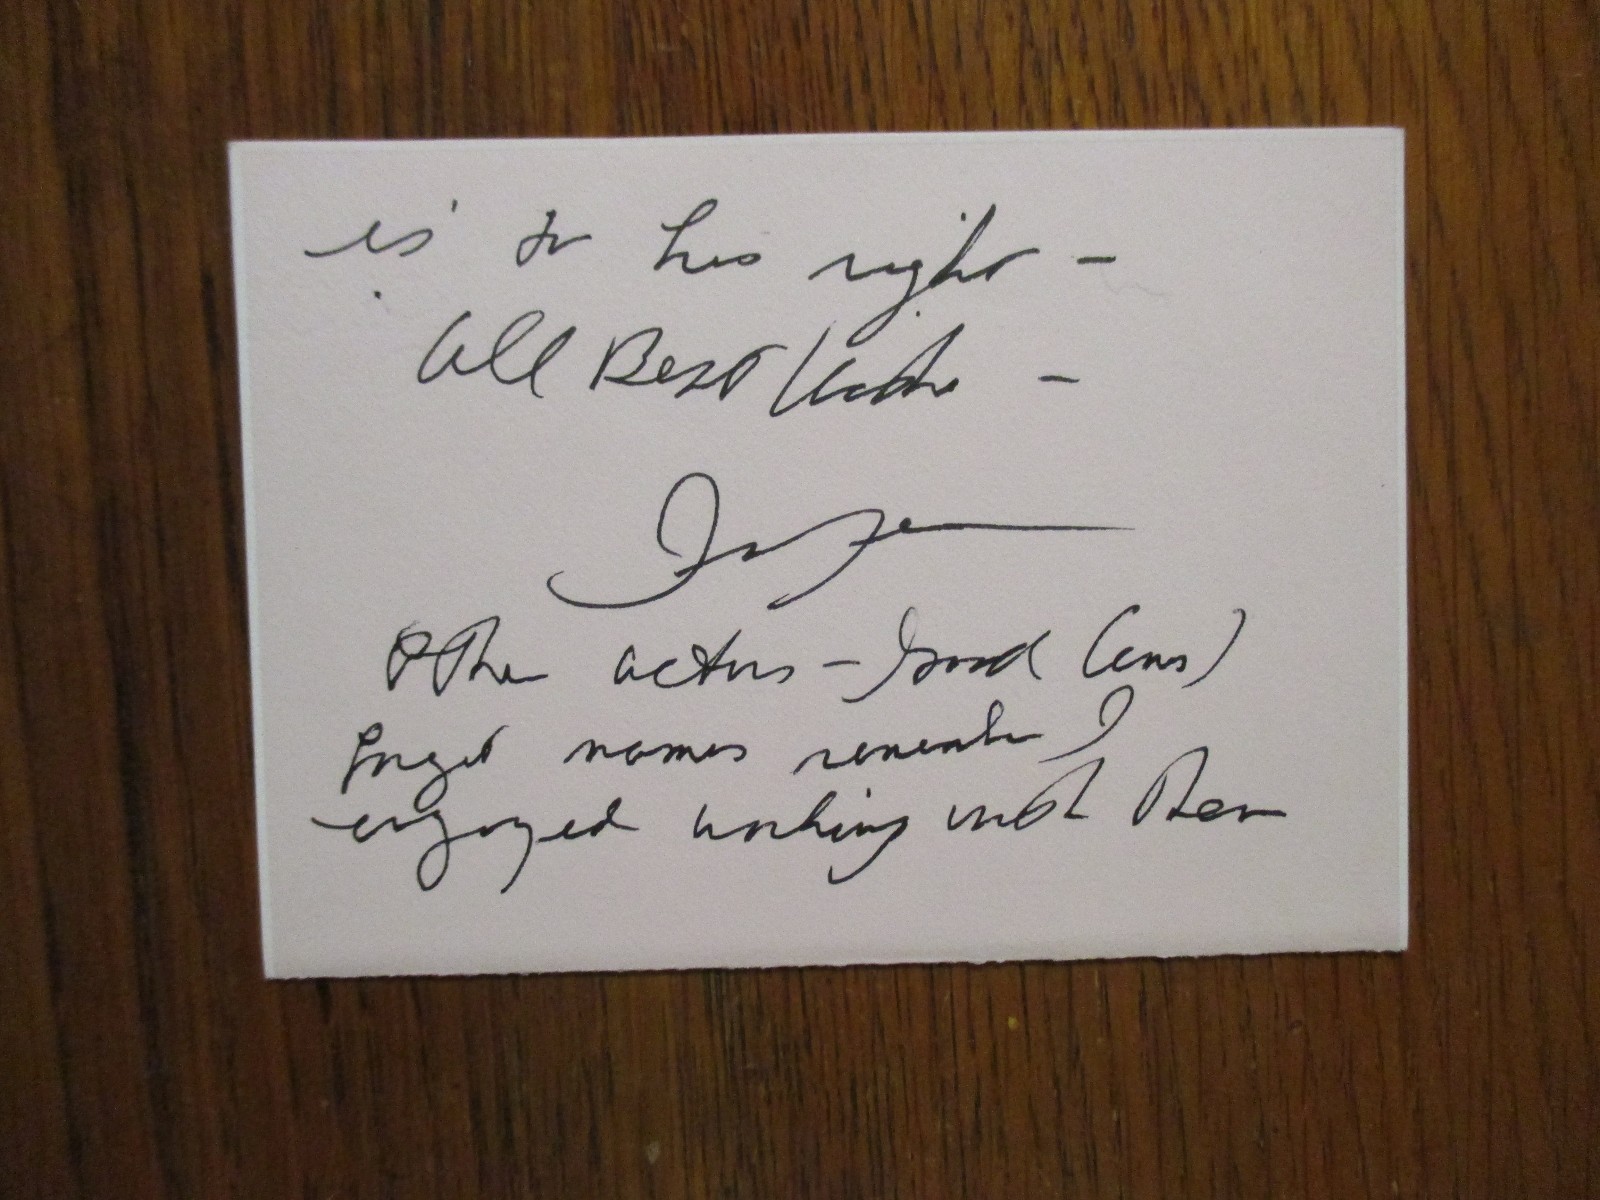 is to his right -
All Best Wishes -
Other actors - good (ans)
forget names remember I
enjoyed working with Them